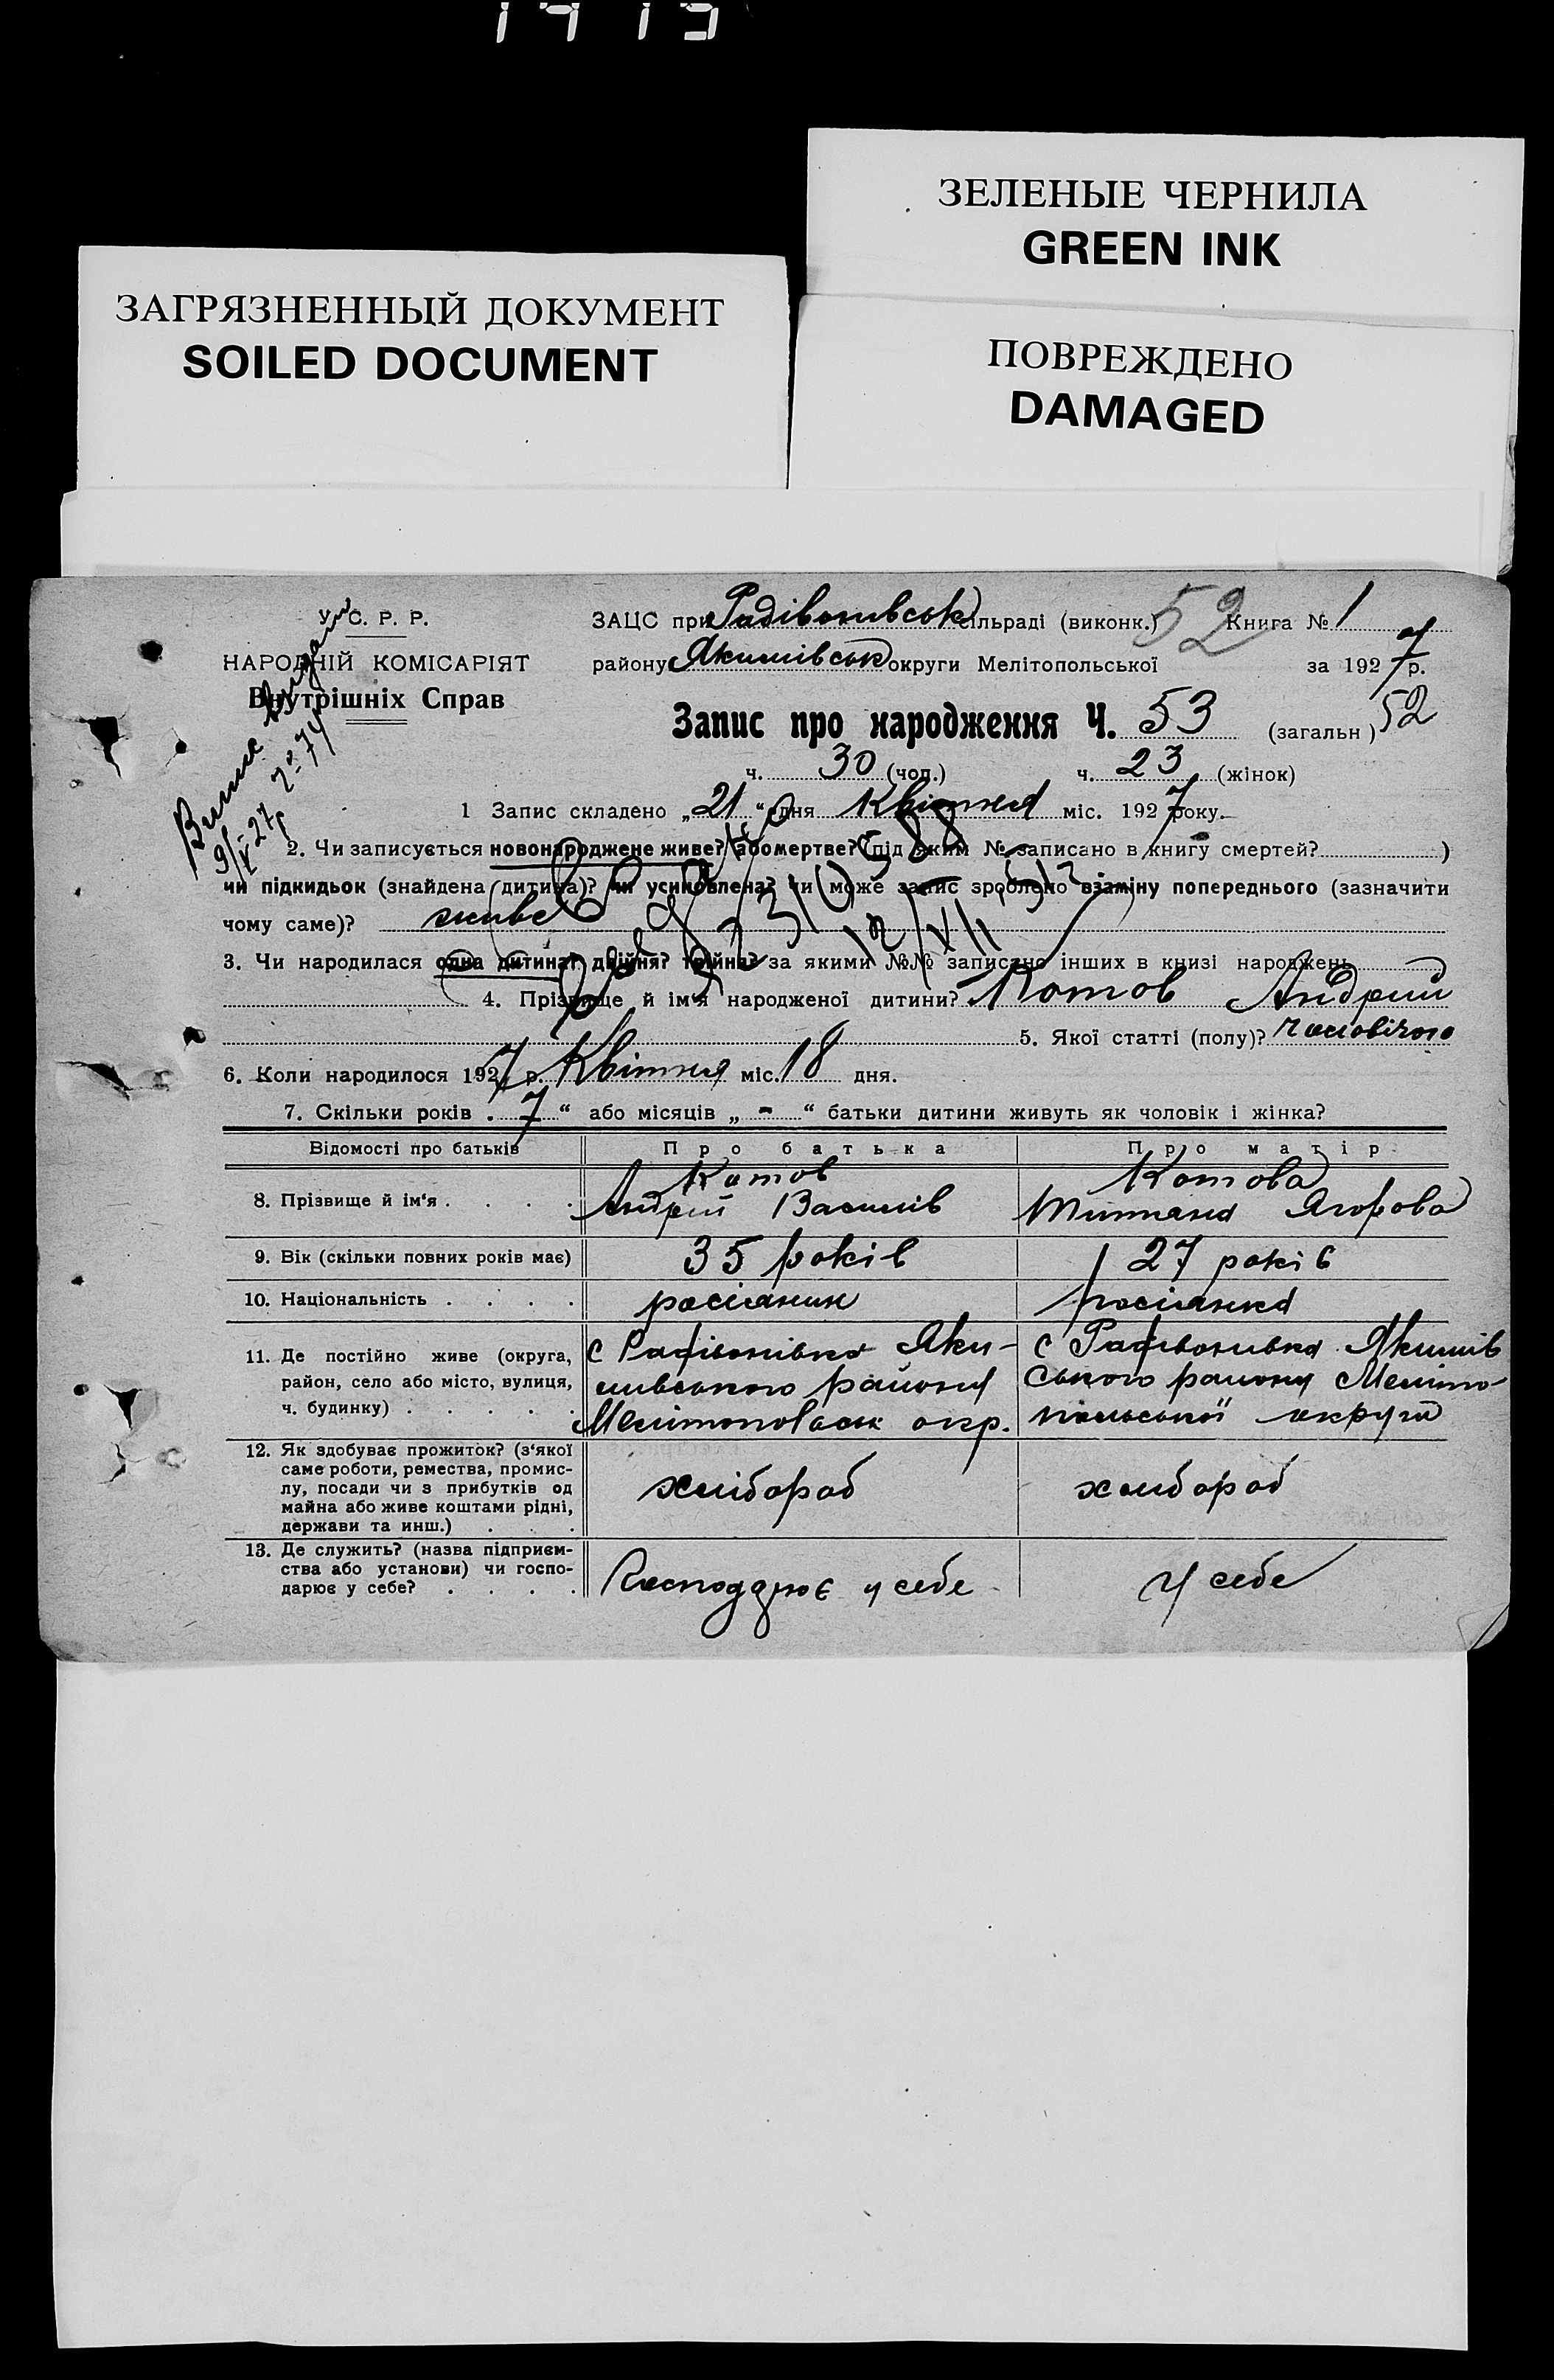 1413
ЗЕЛЕНЫЕ ЧЕРНИЛА
GREEN INK
ЗАГРЯЗНЕННЫЙ ДОКУМЕНТ
SOILED DOCUMENT
ПОВРЕЖДЕНО
DAMAGED
У. С. Р. Р.
НАРОДНІЙ КОМІСАРІЯТ
Внутрішніх Справ
ЗАЦС при Радівонивськ сільраді (виконк.) 52 Книга № 1
району Якимівськ округи Мелітопольської за 1927 р.
Запис про народження Ч. 53 (загальн) 52
ч. 30 (чол.) ч. 23 (жінок)
1 Запис складено „21“ дня Квітня міс. 1927 року.
2. Чи записується новонароджене живе? або мертве? (під яким № записано в книгу смертей? )
чи підкидьок (знайдена дитина)? чи усиновлена? чи може запис зроблено взаміну попереднього (зазначити
чому саме)? живе
3. Чи народилася одна дитина? двійня? трійня? за якими №№ записано інших в книзі народжень
4. Прізвище й ім'я народженої дитини? Котов Андрий
5. Якої статті (полу)? чоловічого
6. Коли народилося 1927 р. Квітня міс. 18 дня.
7. Скільки років . 7 “ або місяців „ - “ батьки дитини живуть як чоловік і жінка?
Відомості про батьків Про батька Про матір
8. Прізвище й ім‘я . . . . Котов Андрей Василів Котова Титяна Ягорова
9. Вік (скільки повних років має) 35 років 27 років
10. Національність . . . . росіянин росіянка
11. Де постійно живе (округа, с Радівонівка Яки- с Радивонивка Якимів
район, село або місто, вулиця, мивського району ського району Мелито-
ч. будинку) . . . . . Мелітопольськ окр. польської округи
12. Як здобуває прожиток? (з‘якої
саме роботи, ремества, промис-
лу, посади чи з прибутків од хлібороб хлибороб
майна або живе коштами рідні,
держави та инш.) . . .
13. Де служить? (назва підприєм-
ства або установи) чи госпо- Господарює у себе У себе
дарює у себе? . . . .